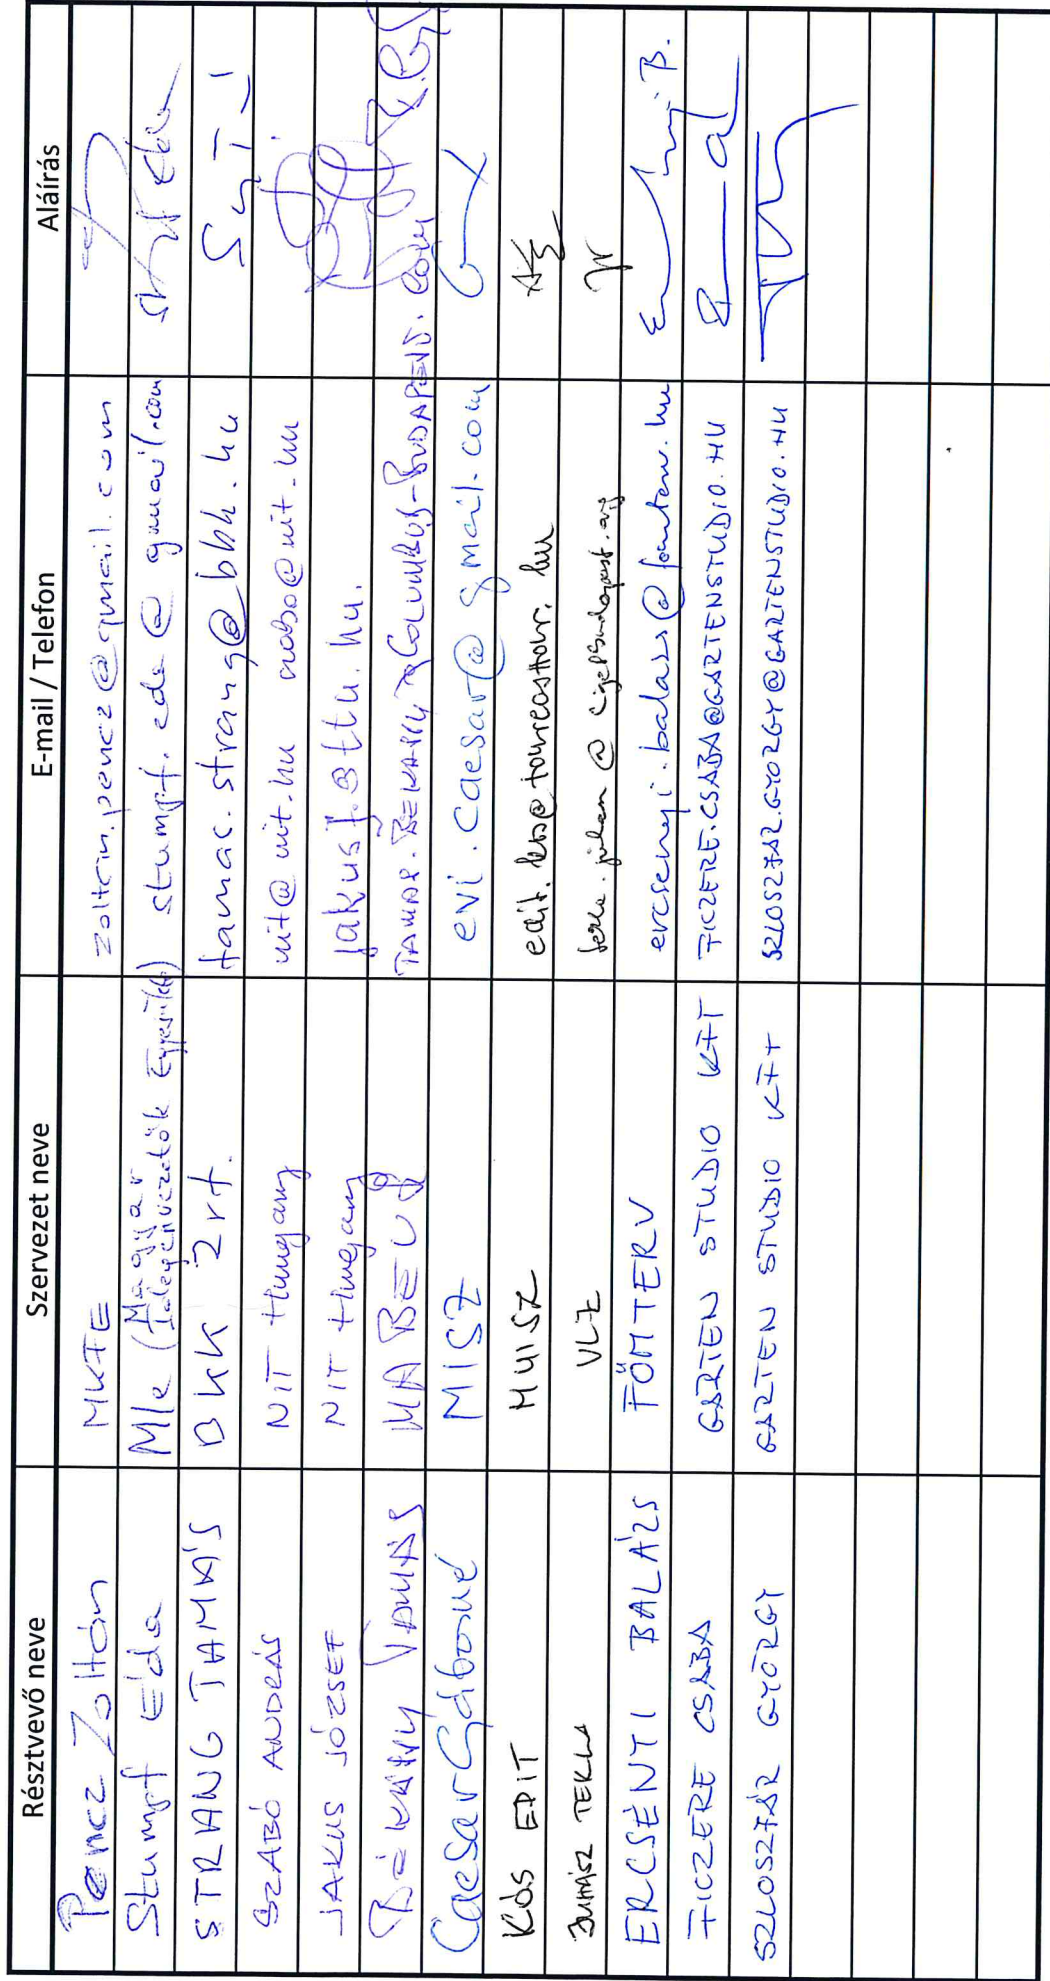 Résztvevő neve Szervezet neve E-mail / Telefon Aláírás
Pencz Zoltán MKTE zoltan.pencz@gmail.com
Stumpf Eda MIe (Magyar Idegenvezetők Egyesülete) stumpf.eda@gmail.com
STRANG TAMÁS BKK Zrt. tamas.strang@bkk.hu
SZABÓ ANDRÁS NIT Hungary nit@nit.hu
JAKUS JÓZSEF NIT Hungary
TAMÁS MABEUSZ
Caesar Gáborné MISZ evi.caesar@gmail.com
KÓS EDIT MUISZ
JUHÁSZ TEKLA VLZ
ERCSÉNYI BALÁZS FŐMTERV ercsenyi.balazs@fomterv.hu
FICZERE CSABA GARTEN STUDIO KFT FICZERE.CSABA@GARTENSTUDIO.HU
SZLOSZJÁR GYÖRGY GARTEN STUDIO KFT SZLOSZJAR.GYORGY@GARTENSTUDIO.HU